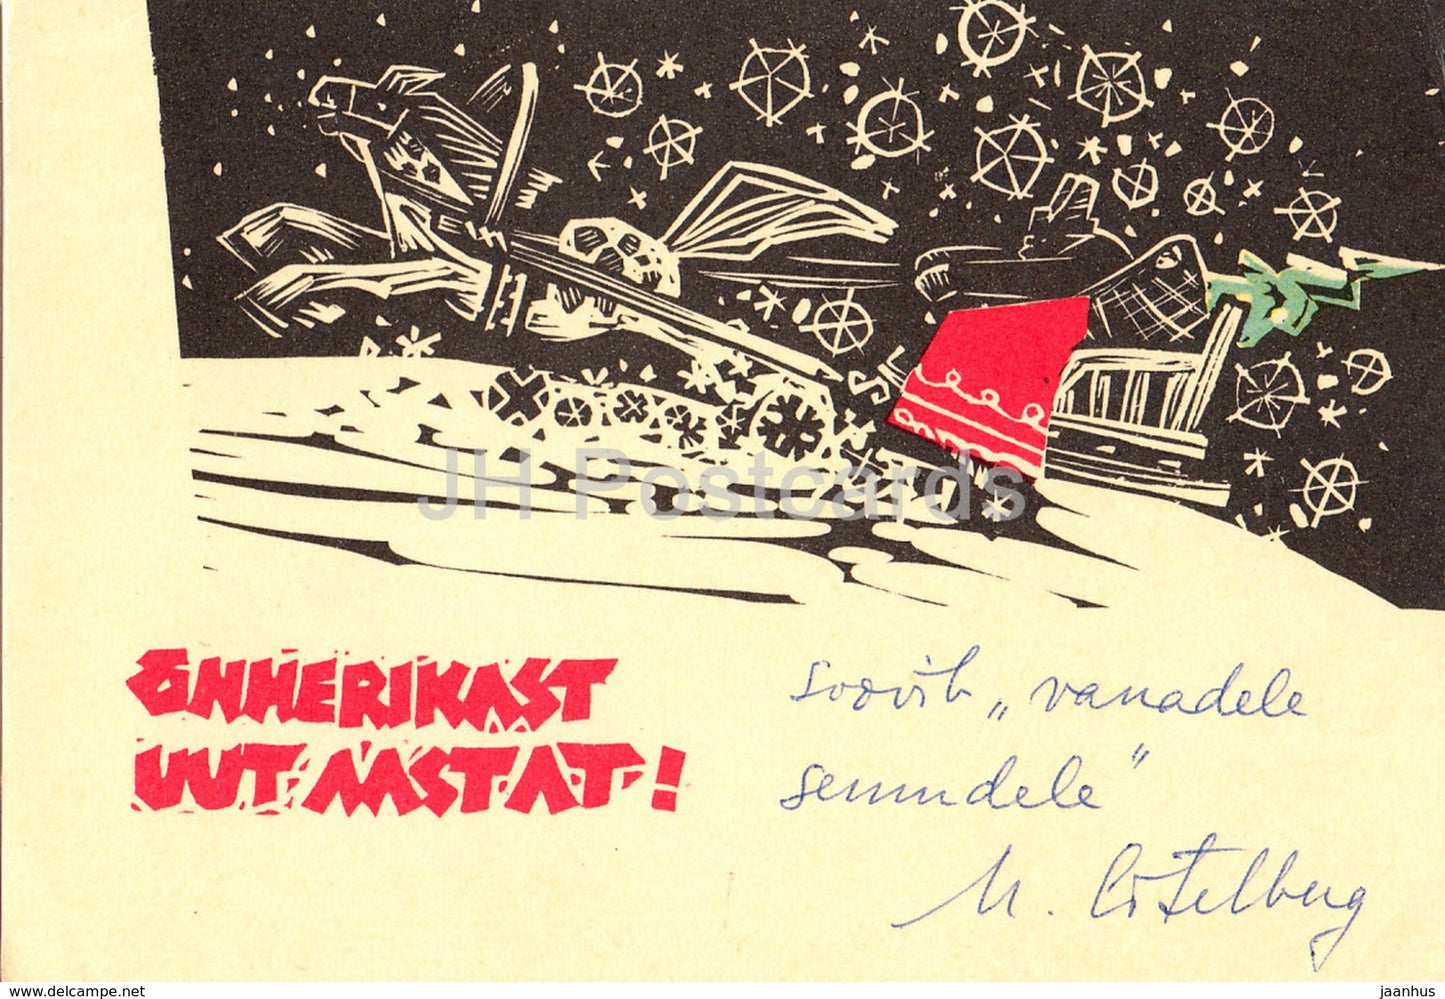 JH Postcards
ÕNNERIKAST
UUT AASTAT!
soovib „vanadele
semudele"
M.
www.delcampe.net
jaanhus